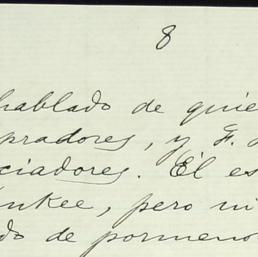 8
hablado de quie
pradores, y F.
ciadores. Él es
nkee, pero ni
do de pormeno